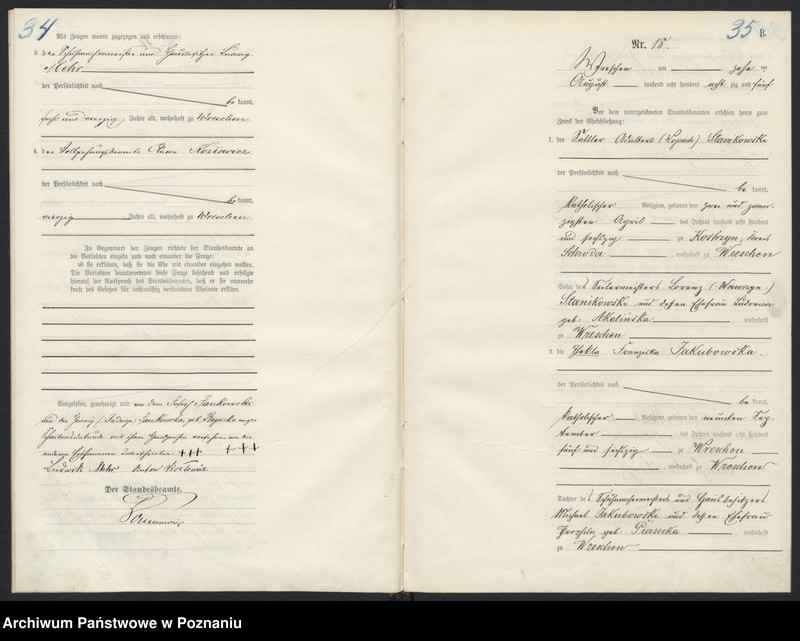 34
Als Zeugen waren zugezogen und erschienen:
3. der Schuhmachermeister und Hausbesitzer Ludwig
Mehr
der Persönlichkeit nach
be kannt,
sechs und vierzig Jahre alt, wohnhaft zu Wreschen
4. der
der Persönlichkeit nach
be kannt,
vierzig Jahre alt, wohnhaft zu Wreschen
In Gegenwart der Zeugen richtete der Standesbeamte an
die Verlobten einzeln und nach einander die Frage:
ob sie erklären, daß sie die Ehe mit einander eingehen wollen.
Die Verlobten beantworteten diese Frage bejahend und erfolgte
hierauf der Ausspruch des Standesbeamten, daß er sie nunmehr
kraft des Gesetzes für rechtmäßig verbundene Eheleute erkläre.
Vorgelesen, genehmigt und von dem Joseph Jankowski
und der
mit ihren Handzeichen versehen, von den
anderen Erschienenen unterschrieben. +++ +++
Ludwik Mehr Anton
Der Standesbeamte.
35 B.
Nr. 18.
Wreschen am zehn ten
August tausend acht hundert acht zig und fünf
Vor dem unterzeichneten Standesbeamten erschienen heute zum
Zweck der Eheschließung:
1. der Sattler Adalbert (Wojciech) Stanikowski
der Persönlichkeit nach
be kannt,
katholischer Religion, geboren den zwei und zwan-
zigsten April des Jahres tausend acht hundert
und sechszig zu Kostrzyn, Kreis
Schroda, wohnhaft zu Wreschen
Sohn des Seilermeisters Lorenz (Wawrzyn.)
Stanikowski und dessen Ehefrau Ludowika
geb. Akolińska wohnhaft
zu Wreschen
2. die Thekla Franziska Jakubowska.
der Persönlichkeit nach
be kannt,
katholischer Religion, geboren den neunten Sep-
tember des Jahres tausend acht hundert
fünf und sechszig zu Wreschen
, wohnhaft zu Wreschen
Tochter des Schuhmachermeisters und Hausbesitzers
Michael Jakubowski und dessen Ehefrau
geb. Piasecka wohnhaft
zu Wreschen
Archiwum Państwowe w Poznaniu